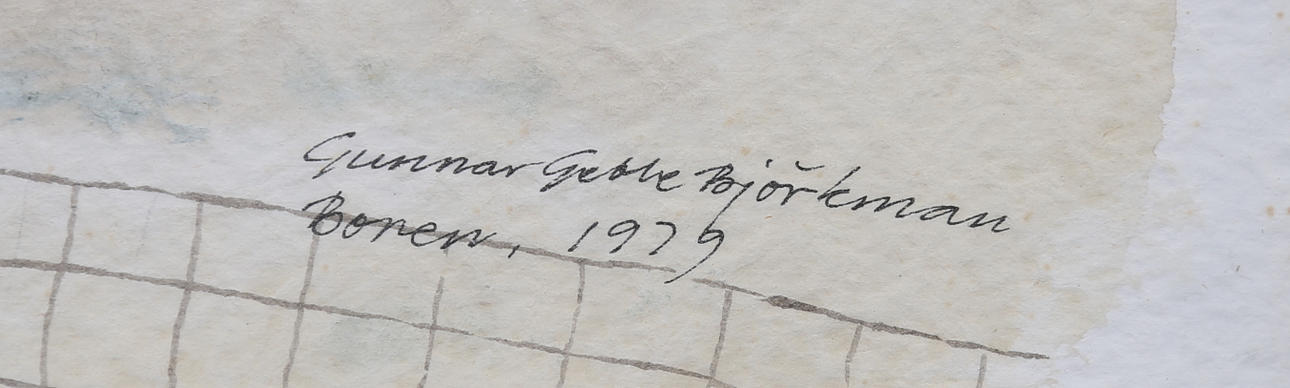 Gunnar Gebbe Björkman
Boren, 1979